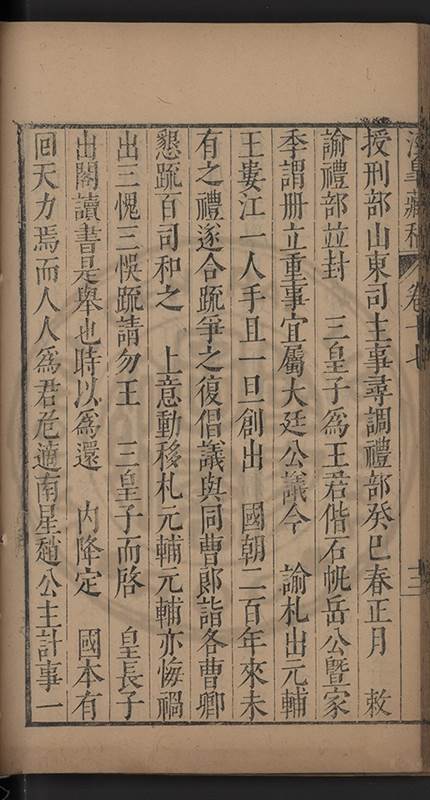 涇臯藏稿 卷十七 十二
授刑部山東司主事尋調禮部癸巳春正月 敕
諭禮部並封 三皇子爲王君偕石帆岳公曁家
季謂冊立重事宜屬大廷公議今 諭札出元輔
王婁江一人手且一旦創出 國朝二百年來未
有之禮遂合疏爭之復倡議與同曹郎詣各曹卿
懇䟽百司和之 上意動移札元輔元輔亦悔禍
出三愧三悞䟽請勿王 三皇子而啓 皇長子
出閣讀書是舉也時以爲還 內降定 國本有
回天力焉而人人爲君危適南星趙公主計事一